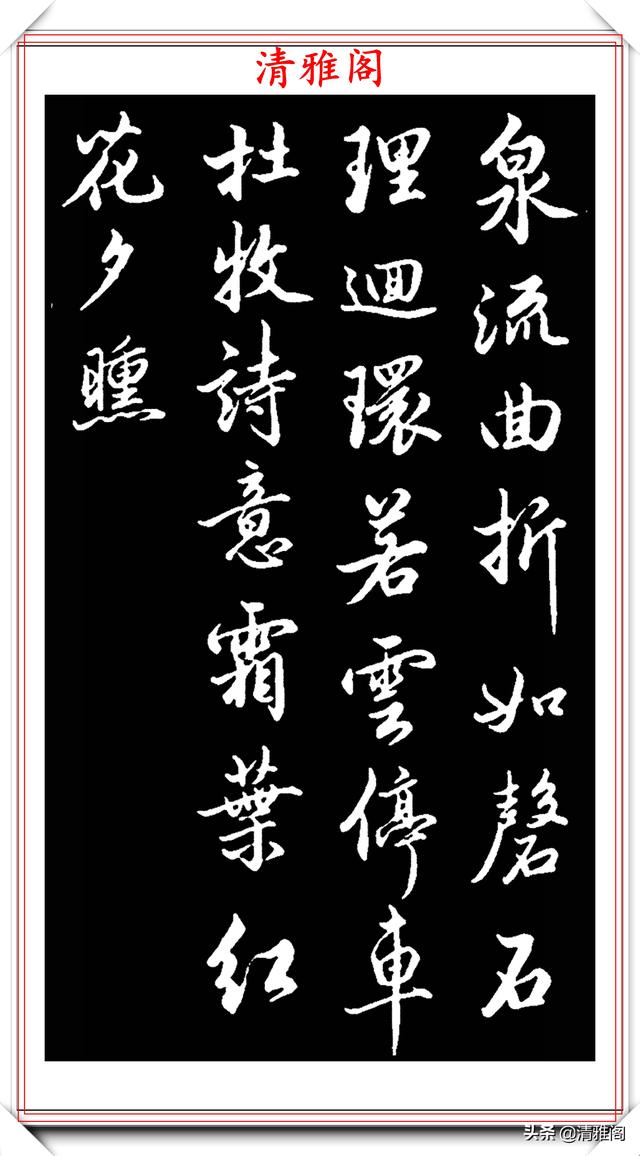 清雅阁
泉流曲折如磬石
理迴環若雲停車
杜牧詩意霜葉红
花夕曛
头条 @清雅阁